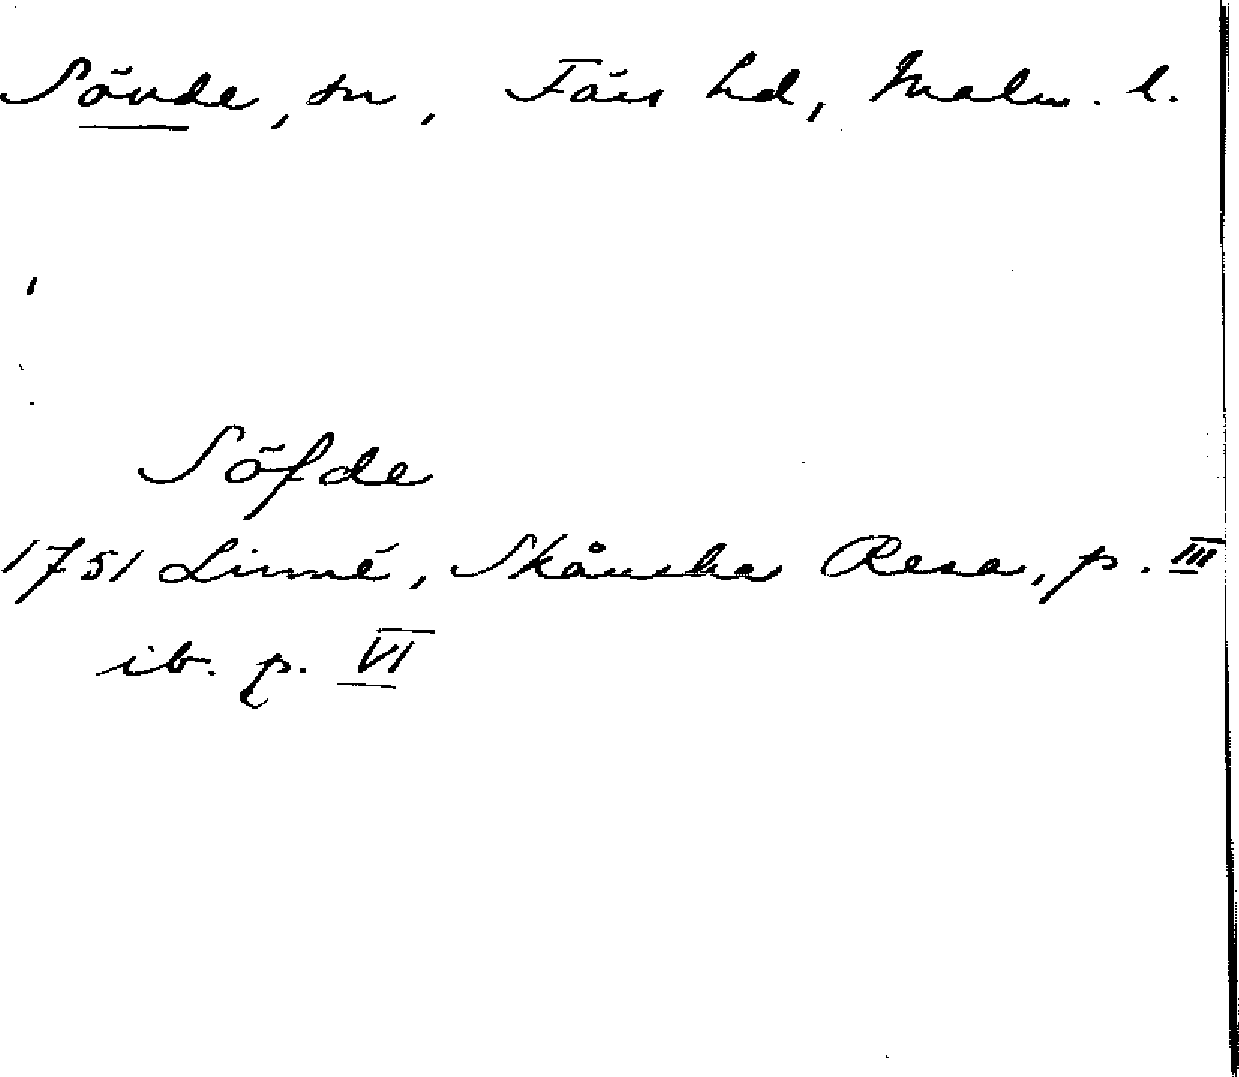 Sövde, sn, Färs hd, Malm. l.
Söfde
1751 Linné, Skånska Resa, p. III
ib. p. VI